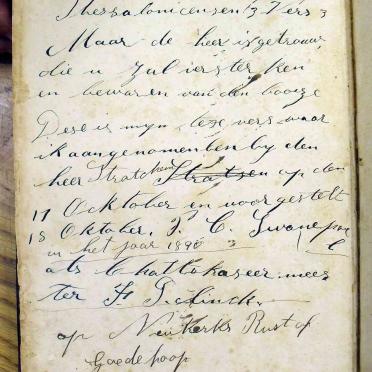 Thessalonicensen 3 Vers 3
Maar de heer is getrouw,
die u zal verster ken
en bewaren van den booze
Dese is myn leze vers waar
ik aangenomenben by den
heer Stratchen Stratsen op den
17 Ocktober en voor gestelt
18 Oktober, P. C. Swanepoel
in het jaar 1890
als Chattekaseer mees
ter
op Neukerks Rust of
Goede hoop